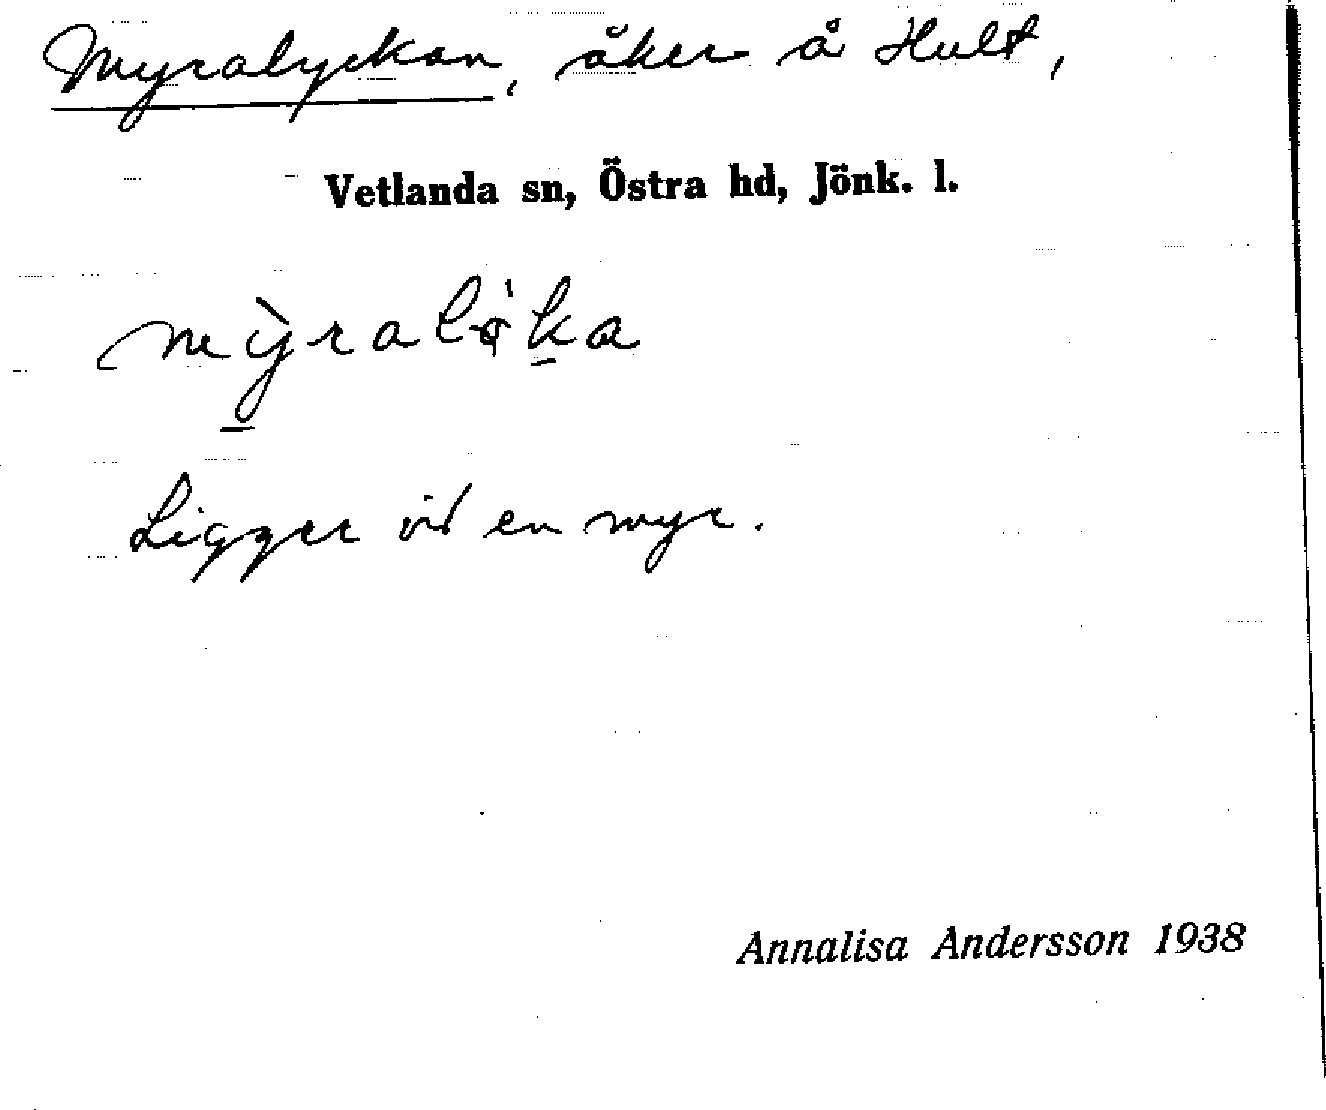 Myralyckan, åker å Hult,
Vetlanda sn, Östra hd, Jönk. l.
Ligger vid en myr.
Annalisa Andersson 1938